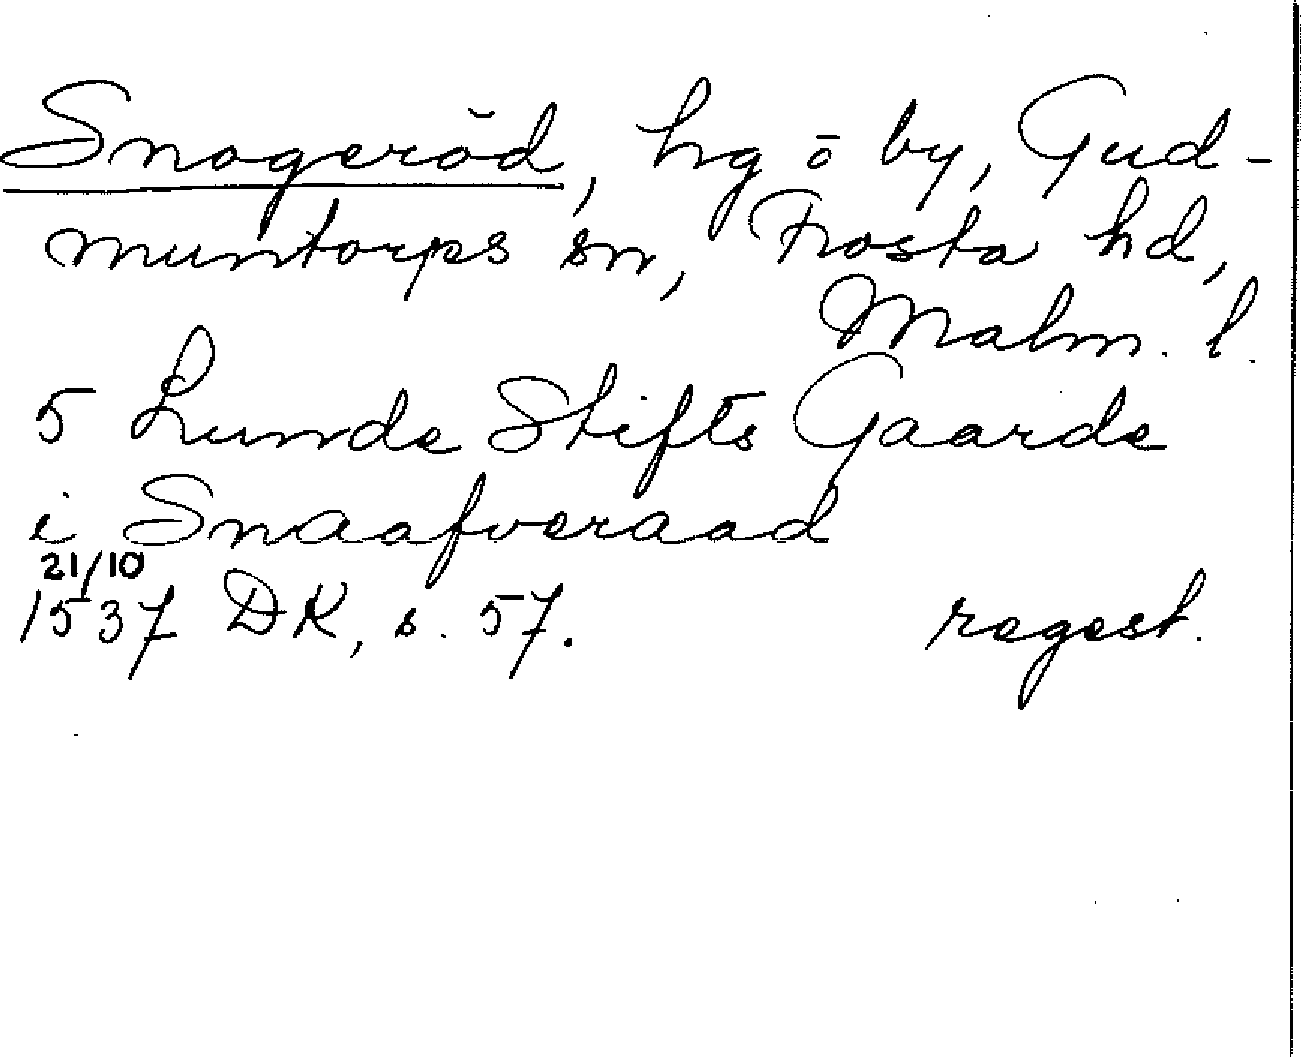 Snogeröd, hg ō by, Gud-
muntorps sn, Frosta hd,
Malm. l.
5 Lunde Stifts Gaarde
i Snaafveraad
21/10
1537 DK, s. 57. regest.